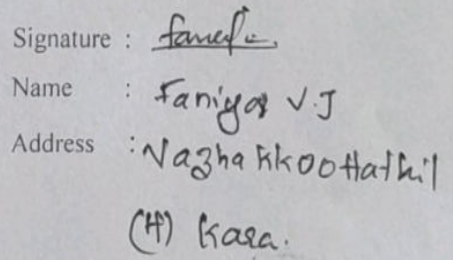 Signature :
Name : Faniya V.J
Address : Nazhakkoottathil
(H) Kara.